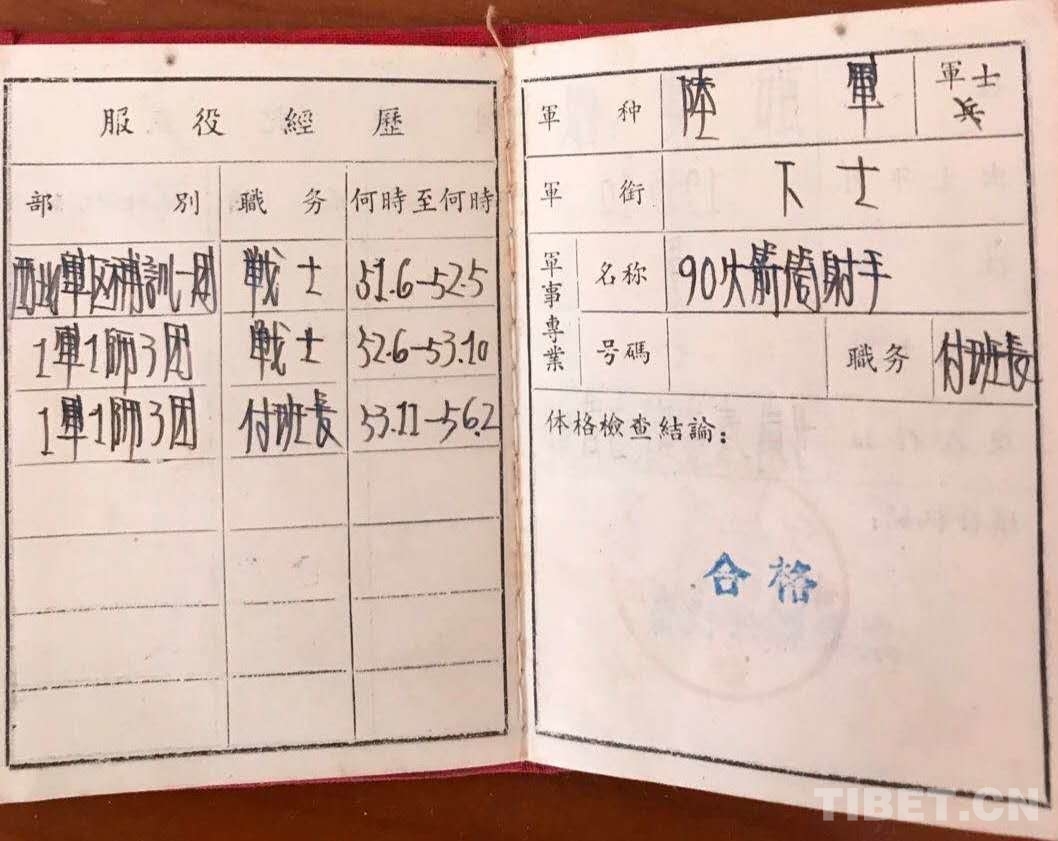 服役經歷
部別 職务 何時至何時
西北軍区補訓一团 戦士 51.6-52.5
1軍1師3团 戦士 52.6-53.10
1軍1師3团 付班長 53.11-56.2
軍种 陸軍 軍士兵
軍銜 下士
軍事專業 名称 90火箭筒射手
号碼 职务 付班長
体格檢查結論：
合格
TIBET.CN